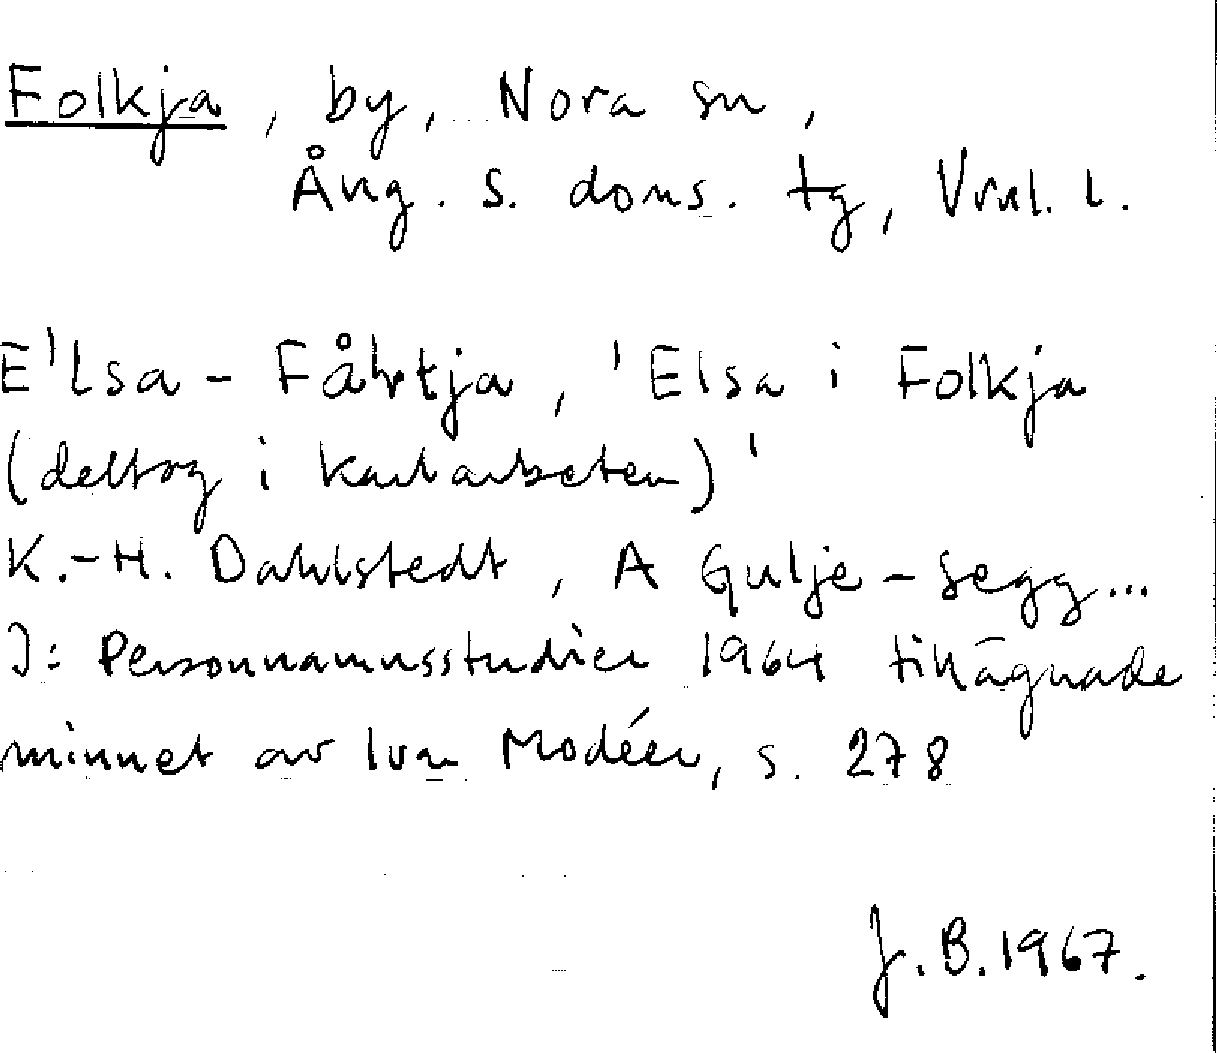 Folkja, by, Nora sn,
Ång. s. doms. tg, Vrnl. l.
E'Lsa - Fåhrtja, 'Elsa i Folkja
(deltog i karlarbeten)'
K.-H. Dahlstedt, A Gulje - Segg...
I: Personnamnsstudier 1964 tillägnade
minnet av Ivar Modéer, s. 278
J.B. 1967.